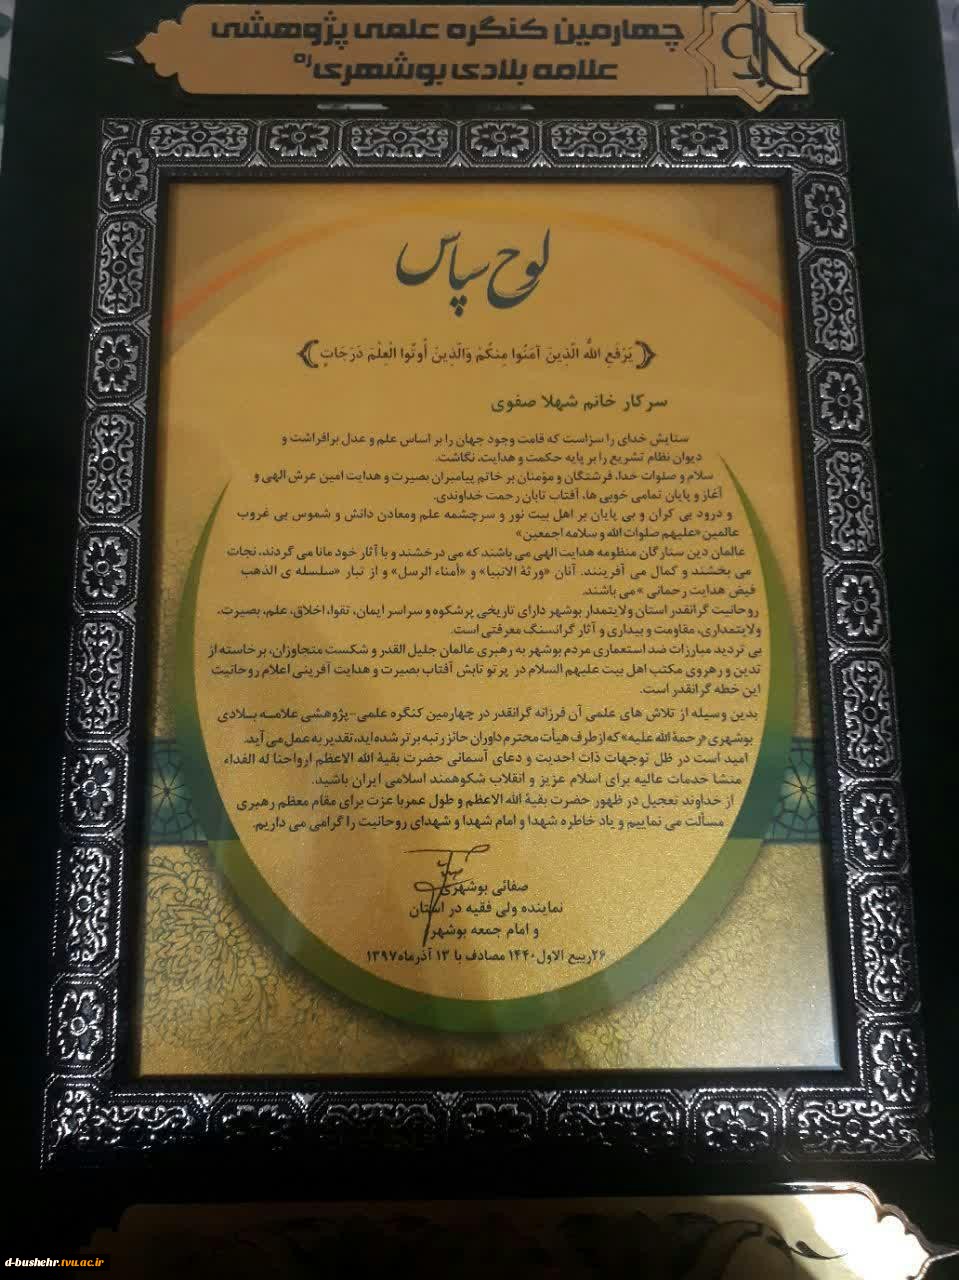 چهارمین کنگره علمی پژوهشی
علامه بلادی بوشهری ره
لوح سپاس
﴿يَرْفَعِ اللَّه الَّذِينَ آمَنُوا مِنكُمْ وَالَّذِينَ أُوتُوا الْعِلْمَ دَرَجَاتٍ﴾
سرکار خانم شهلا صفوی
ستایش خدای را سزاست که قامت وجود جهان را بر اساس علم و عدل برافراشت و
دیوان نظام تشریع را بر پایه حکمت و هدایت، نگاشت.
سلام و صلوات خدا، فرشتگان و مؤمنان بر خاتم پیامبران بصیرت و هدایت امین عرش الهی و
آغاز و پایان تمامی خوبی ها، آفتاب تابان رحمت خداوندی.
و درود بی کران و بی پایان بر اهل بیت نور و سرچشمه علم ومعادن دانش و شموس بی غروب
عالمین «علیهم صلوات الله و سلامه اجمعین»
عالمان دین ستارگان منظومه هدایت الهی می باشند که می درخشند و با آثار خود مانا می گردند، نجات
می بخشند و کمال می آفرینند. آنان «ورثة الانبیا» و «أمناء الرسل» و از تبار «سلسله ی الذهب
فیض هدایت رحمانی» می باشند.
روحانیت گرانقدر استان ولایتمدار بوشهر دارای تاریخی پرشکوه و سراسر ایمان، تقوا، اخلاق، علم، بصیرت،
ولایتمداری، مقاومت و بیداری و آثار گرانسنگ معرفتی است.
بی تردید مبارزات ضد استعماری مردم بوشهر به رهبری عالمان جلیل القدر و شکست متجاوزان، برخاسته از
تدین و رهروی مکتب اهل بیت علیهم السلام در پرتو تابش آفتاب بصیرت و هدایت آفرینی اعلام روحانیت
این خطه گرانقدر است.
بدین وسیله از تلاش های علمی آن فرزانه گرانقدر در چهارمین کنگره علمی-پژوهشی علامه بلادی
بوشهری «رحمة الله علیه» که از طرف هیأت محترم داوران حائز رتبه برتر شده اید، تقدیر به عمل می آید.
امید است در ظل توجهات ذات احدیت و دعای آسمانی حضرت بقیة الله الاعظم ارواحنا له الفداء
منشا خدمات عالیه برای اسلام عزیز و انقلاب شکوهمند اسلامی ایران باشید.
از خداوند تعجیل در ظهور حضرت بقیة الله الاعظم و طول عمر با عزت برای مقام معظم رهبری
مسألت می نماییم و یاد خاطره شهدا و امام شهدا و شهدای روحانیت را گرامی می داریم.
صفائی بوشهری
نماینده ولی فقیه در استان
و امام جمعه بوشهر
۲۶ربیع الاول۱۴۴۰ مصادف با ۱۳ آذرماه۱۳۹۷
d-bushehr.tvu.ac.ir